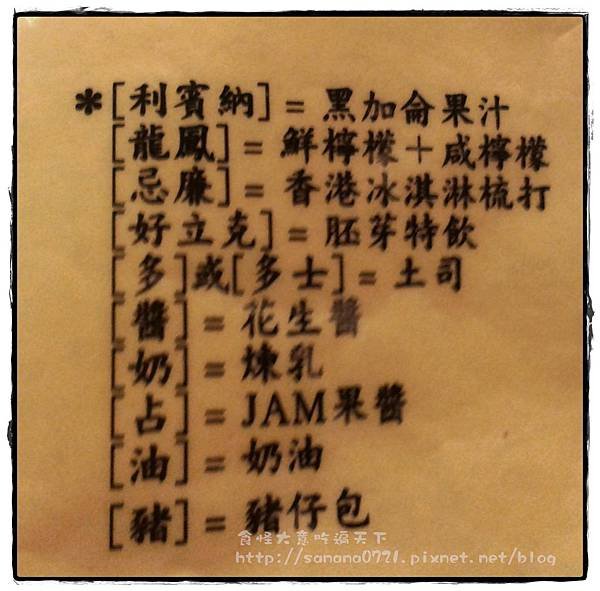 *[利賓納]=黑加侖果汁
[龍鳳]=鮮檸檬+咸檸檬
[忌廉]=香港冰淇淋梳打
[好立克]=胚芽特飲
[多]或[多士]=土司
[醬]=花生醬
[奶]=煉乳
[占]=JAM果醬
[油]=奶油
[豬]=豬仔包
食怪大意吃遍天下
http://sanana0721.pixnet.net/blog